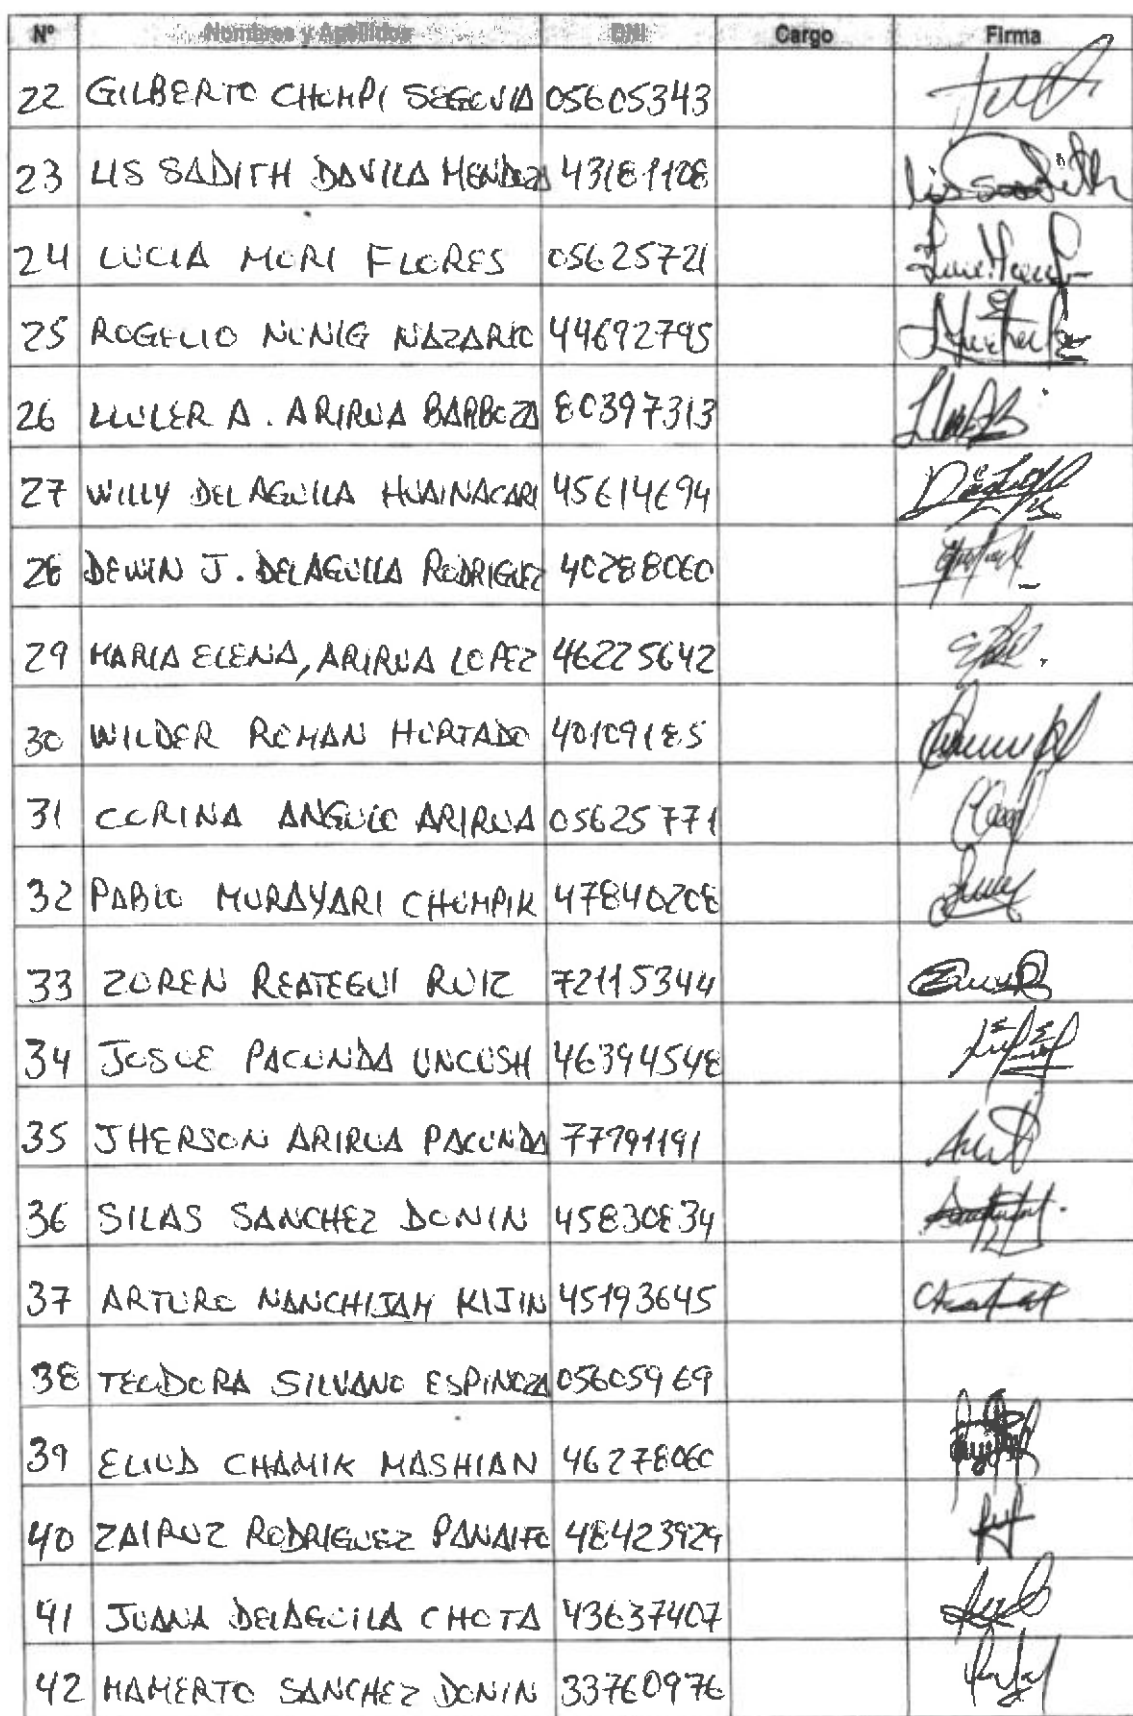 Nº Nombres y Apellidos DNI Cargo Firma
22 GILBERTO CHUMPI SEGOVIA 05605343
23 LIS SADITH DAVILA MENDOZA 43181108
24 LUCIA MORI FLORES 05625721
25 ROGELIO NUNIG NAZARIO 44692795
26 LLULER A. ARIRUA BARBOZA 80397313
27 WILLY DEL AGUILA HUAINACARI 45614694
28 DEWIN J. DELAGUILA RODRIGUEZ 40288060
29 MARIA ELENA, ARIRUA LOPEZ 46225642
30 WILDER ROMAN HURTADO 40109185
31 CORINA ANGULO ARIRUA 05625771
32 PABLO MURAYARI CHUMPIK 47840208
33 ZOREN REATEGUI RUIZ 72115344
34 JOSUE PACUNDA UNCUSH 46394548
35 JHERSON ARIRUA PACUNDA 77791191
36 SILAS SANCHEZ DONIN 45830834
37 ARTURO NANCHIJAM KIJIN 45193645
38 TEODORA SILVANO ESPINOZA 05605969
39 ELIUD CHAMIK MASHIAN 46278060
40 ZAIRUZ RODRIGUEZ PANAIFO 48423929
41 JUANA DELAGUILA CHOTA 43637407
42 MAMERTO SANCHEZ DONIN 33760976